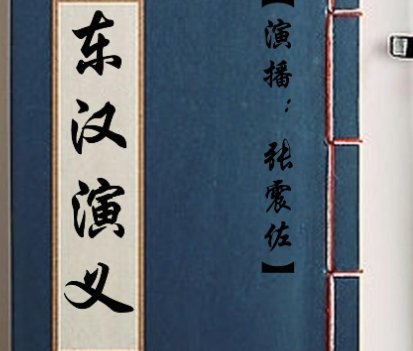 东汉演义
【演播：张震佐】